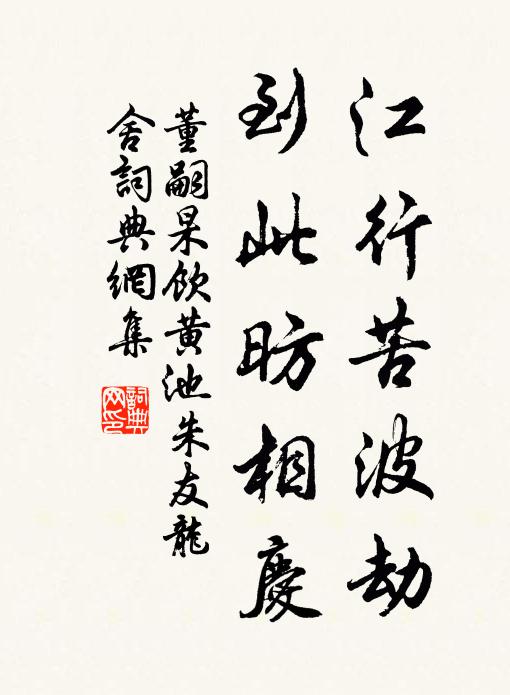 江行苦波劫
到此昉相慶
董嗣杲飲黄池朱友龍
舍詞典網集
詞典
网印